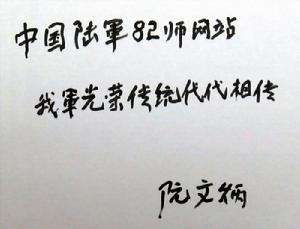 中国陆軍82师网站
我軍光荣传统代代相传
阮文炳